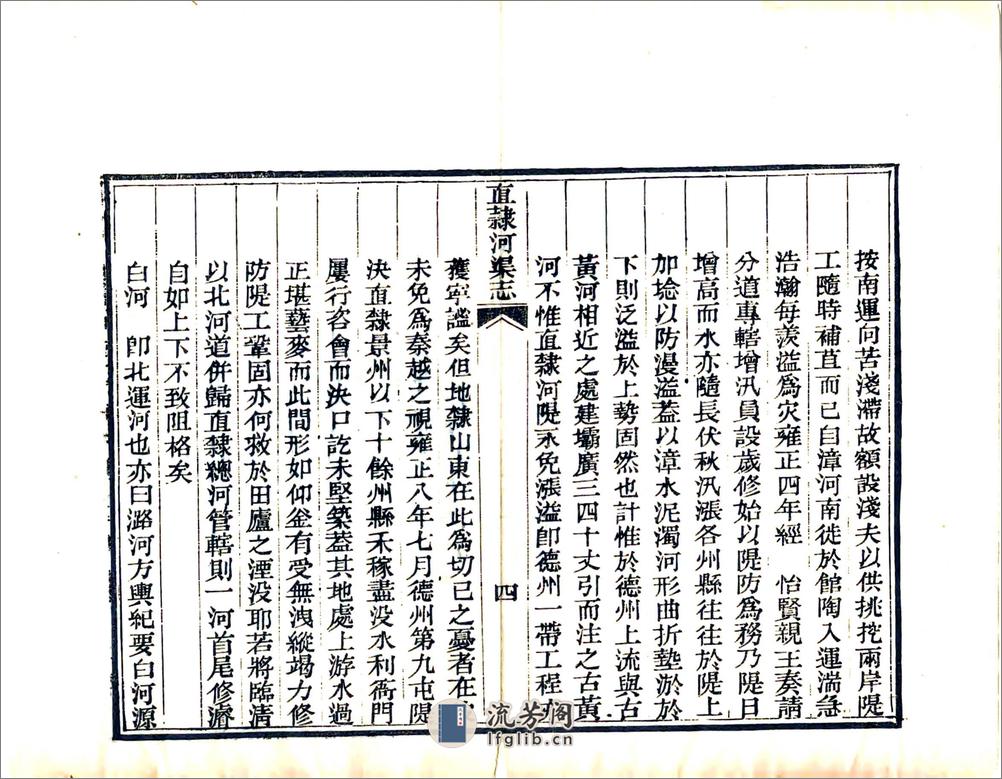 按南運向苦淺滯故額設淺夫以供挑挖兩岸隄
工隨時補苴而已自漳河南徙於館陶入運湍急
浩瀚每羨溢爲灾雍正四年經　怡賢親王奏請
分道專轄增汛員設歲修始以隄防爲務乃隄日
增高而水亦隨長伏秋汛漲各州縣往往於隄上
加埝以防漫溢葢以漳水泥濁河形曲折墊淤於
下則泛溢於上勢固然也計惟於德州上流與古
黃河相近之處建壩廣三四十丈引而注之古黃
河不惟直隸河隄永免漲溢卽德州一帶工程
直隸河渠志
四
獲寧謐矣但地隸山東在此爲切已之憂者在
未免爲秦越之視雍正八年七月德州第九屯隄
決直隸景州以下十餘州縣禾稼盡没水利衙門
屢行咨會而決口訖未堅築葢其地處上游水過
正堪藝麥而此間形如仰釡有受無洩縱竭力修
防隄工鞏固亦何救於田廬之湮没耶若將臨清
以北河道併歸直隸總河管轄則一河首尾修濬
自如上下不致阻格矣
白河　卽北運河也亦曰潞河方輿紀要白河源
流芳阁
lfglib.cn